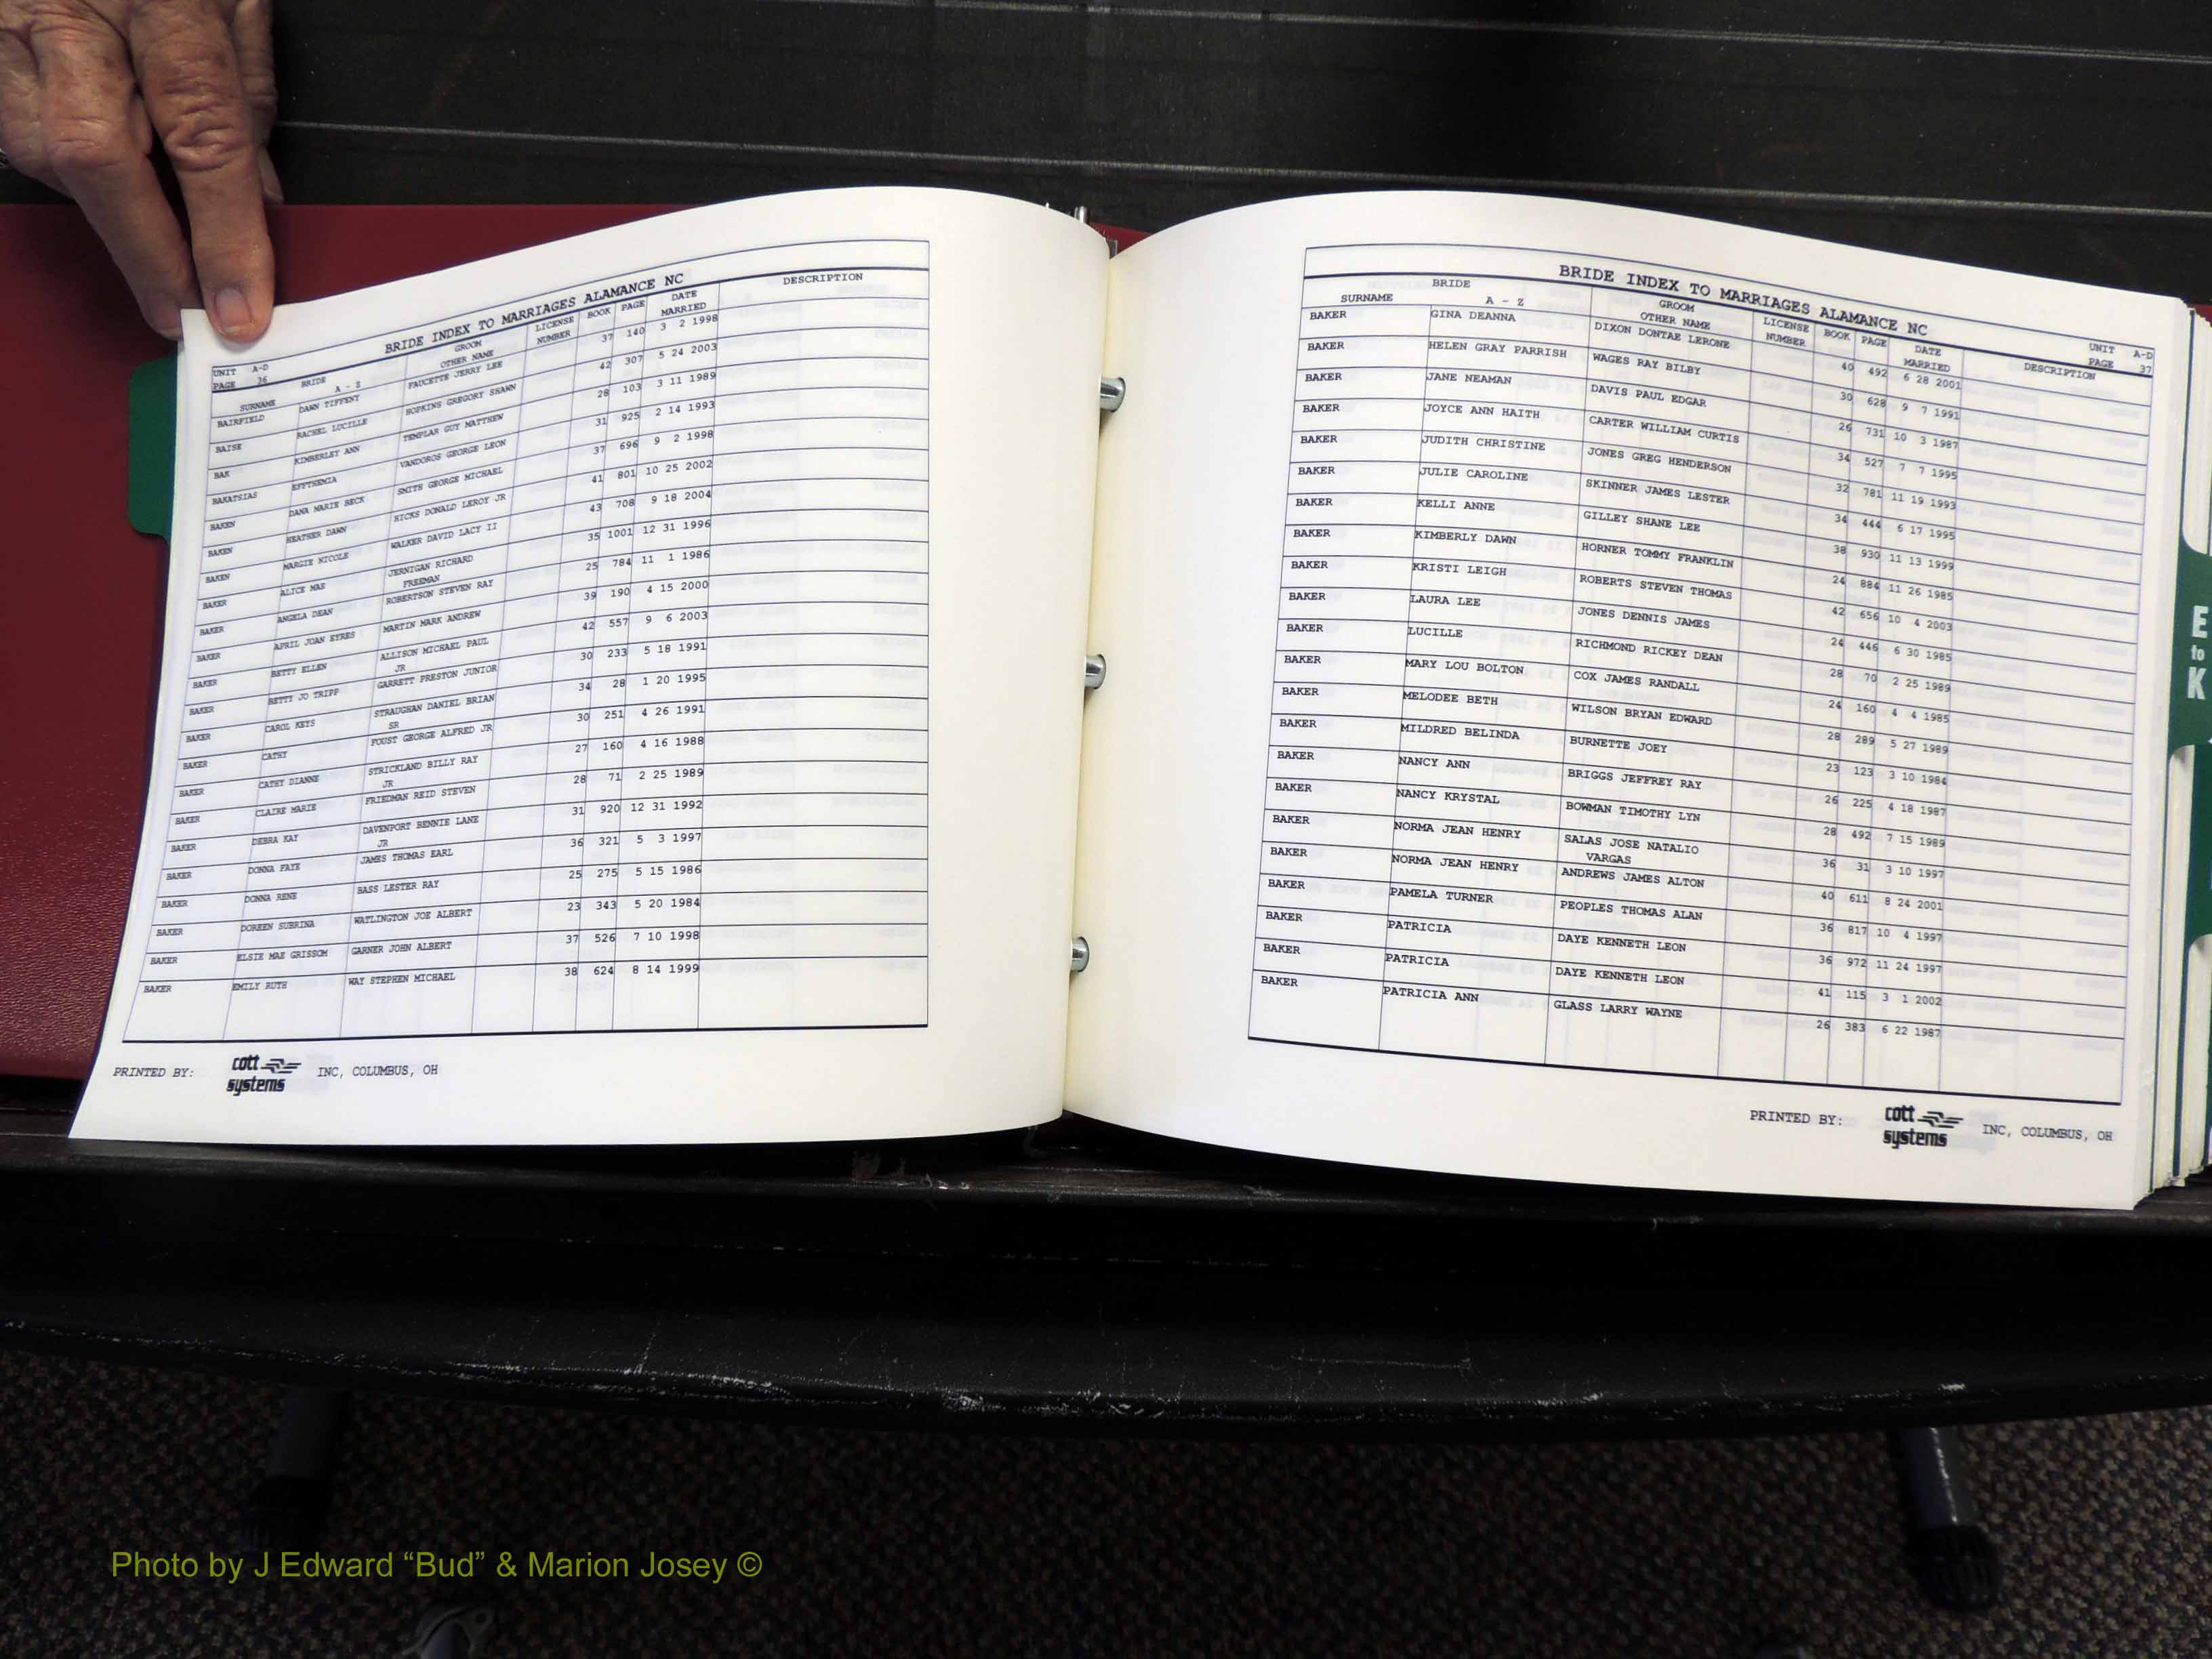 BRIDE INDEX TO MARRIAGES ALAMANCE NC
UNIT A-D
PAGE 36
SURNAME BRIDE A - Z GROOM OTHER NAME LICENSE NUMBER BOOK PAGE DATE MARRIED DESCRIPTION
BAIRFIELD DAWN TIFFENT FAUCETTE JERRY LEE 37 140 3 2 1998
BAISE RACHEL LUCILLE HOPKINS GREGORY SHAWN 42 307 5 24 2003
BAK KIMBERLEY ANN TEMPLAR GUY MATTHEW 28 103 3 11 1989
BAKATSIAS EFFTHEMIA VANDOROS GEORGE LEON 31 925 2 14 1993
BAKEN DANA MARIE BECK SMITH GEORGE MICHAEL 37 696 9 2 1998
BAKEN HEATHER DAWN HICKS DONALD LEROY JR 41 801 10 25 2002
BAKEN MARGIE NICOLE WALKER DAVID LACY II 43 708 9 18 2004
BAKER ALICE MAE JERNIGAN RICHARD 35 1001 12 31 1996
FREEMAN
BAKER ANGELA DEAN ROBERTSON STEVEN RAY 25 784 11 1 1986
BAKER APRIL JOAN EYRES MARTIN MARK ANDREW 39 190 4 15 2000
BAKER BETTY ELLEN ALLISON MICHAEL PAUL 42 557 9 6 2003
JR
BAKER BETTY JO TRIPP GARRETT PRESTON JUNIOR 30 233 5 18 1991
BAKER CAROL KEYS STRAUGHAN DANIEL BRIAN 34 28 1 20 1995
SR
BAKER CATHY FOUST GEORGE ALFRED JR 30 251 4 26 1991
BAKER CATHY DIANNE STRICKLAND BILLY RAY 27 160 4 16 1988
JR
BAKER CLAIRE MARIE FRIEDMAN REID STEVEN 28 71 2 25 1989
BAKER DEBRA KAY DAVENPORT BENNIE LANE 31 920 12 31 1992
JR
BAKER DONNA FAYE JAMES THOMAS EARL 36 321 5 3 1997
BAKER DONNA RENE BASS LESTER RAY 25 275 5 15 1986
BAKER DOREEN SUBRINA WATLINGTON JOE ALBERT 23 343 5 20 1984
BAKER ELSIE MAE GRISSOM GARNER JOHN ALBERT 37 526 7 10 1998
BAKER EMILY RUTH WAY STEPHEN MICHAEL 38 624 8 14 1999
PRINTED BY: cott systems INC, COLUMBUS, OH
BRIDE INDEX TO MARRIAGES ALAMANCE NC
UNIT A-D
PAGE 37
SURNAME BRIDE A - Z GROOM OTHER NAME LICENSE NUMBER BOOK PAGE DATE MARRIED DESCRIPTION
BAKER GINA DEANNA DIXON DONTAE LERONE 40 492 6 28 2001
BAKER HELEN GRAY PARRISH WAGES RAY BILBY 30 628 9 7 1991
BAKER JANE NEAMAN DAVIS PAUL EDGAR 26 731 10 3 1987
BAKER JOYCE ANN HAITH CARTER WILLIAM CURTIS 34 527 7 7 1995
BAKER JUDITH CHRISTINE JONES GREG HENDERSON 32 781 11 19 1993
BAKER JULIE CAROLINE SKINNER JAMES LESTER 34 444 6 17 1995
BAKER KELLI ANNE GILLEY SHANE LEE 38 930 11 13 1999
BAKER KIMBERLY DAWN HORNER TOMMY FRANKLIN 24 884 11 26 1985
BAKER KRISTI LEIGH ROBERTS STEVEN THOMAS 42 656 10 4 2003
BAKER LAURA LEE JONES DENNIS JAMES 24 446 6 30 1985
BAKER LUCILLE RICHMOND RICKEY DEAN 28 70 2 25 1989
BAKER MARY LOU BOLTON COX JAMES RANDALL 24 160 4 4 1985
BAKER MELODEE BETH WILSON BRYAN EDWARD 28 289 5 27 1989
BAKER MILDRED BELINDA BURNETTE JOEY 23 123 3 10 1984
BAKER NANCY ANN BRIGGS JEFFREY RAY 26 225 4 18 1987
BAKER NANCY KRYSTAL BOWMAN TIMOTHY LYN 28 492 7 15 1989
BAKER NORMA JEAN HENRY SALAS JOSE NATALIO 36 31 3 10 1997
VARGAS
BAKER NORMA JEAN HENRY ANDREWS JAMES ALTON 40 611 8 24 2001
BAKER PAMELA TURNER PEOPLES THOMAS ALAN 36 817 10 4 1997
BAKER PATRICIA DAYE KENNETH LEON 36 972 11 24 1997
BAKER PATRICIA DAYE KENNETH LEON 41 115 3 1 2002
BAKER PATRICIA ANN GLASS LARRY WAYNE 26 383 6 22 1987
PRINTED BY: cott systems INC, COLUMBUS, OH
E
to
K
Photo by J Edward “Bud” & Marion Josey ©